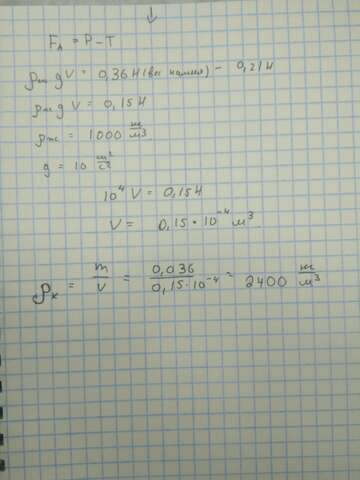 F_A = P - T
ρ_ж g V = 0,36 Н (вес камня) - 0,21 Н
ρ_ж g V = 0,15 Н
ρ_ж = 1000 кг/м³
g = 10 м²/с²
10⁴ V = 0,15 Н
V = 0,15 · 10⁻⁴ м³
ρ_к = m/v = 0,036/0,15·10⁻⁴ = 2400 кг/м³